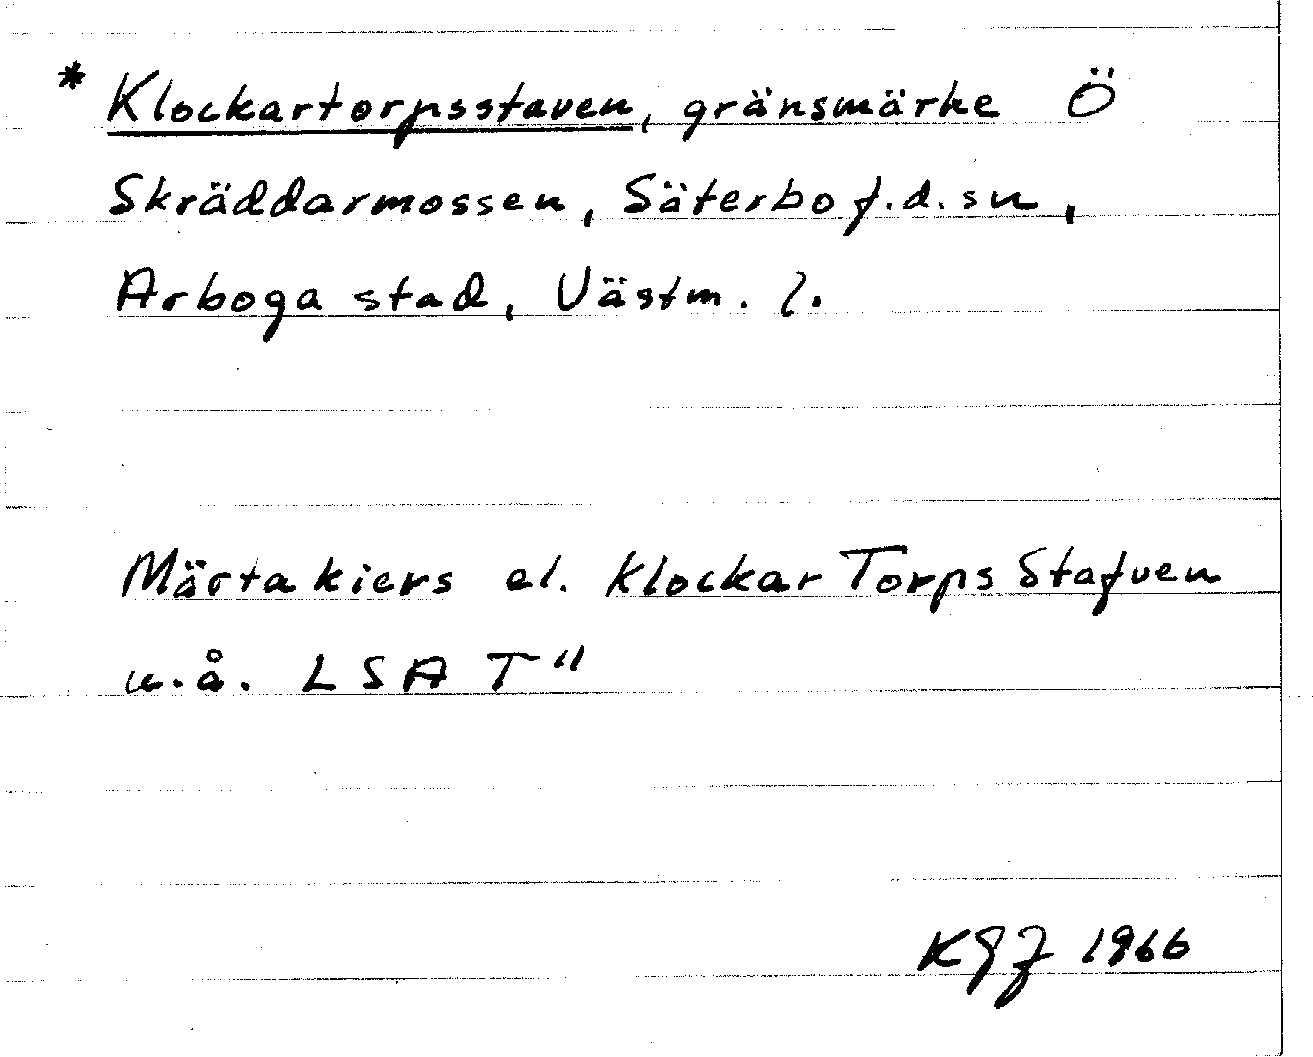 * Klockartorpsstaven, gränsmärke Ö
Skräddarmossen, Säterbo f.d. sn,
Arboga stad, Västm. l.
Märta kiers el. Klockar Torps Stafven
u.å. LSA T"
KGJ 1966